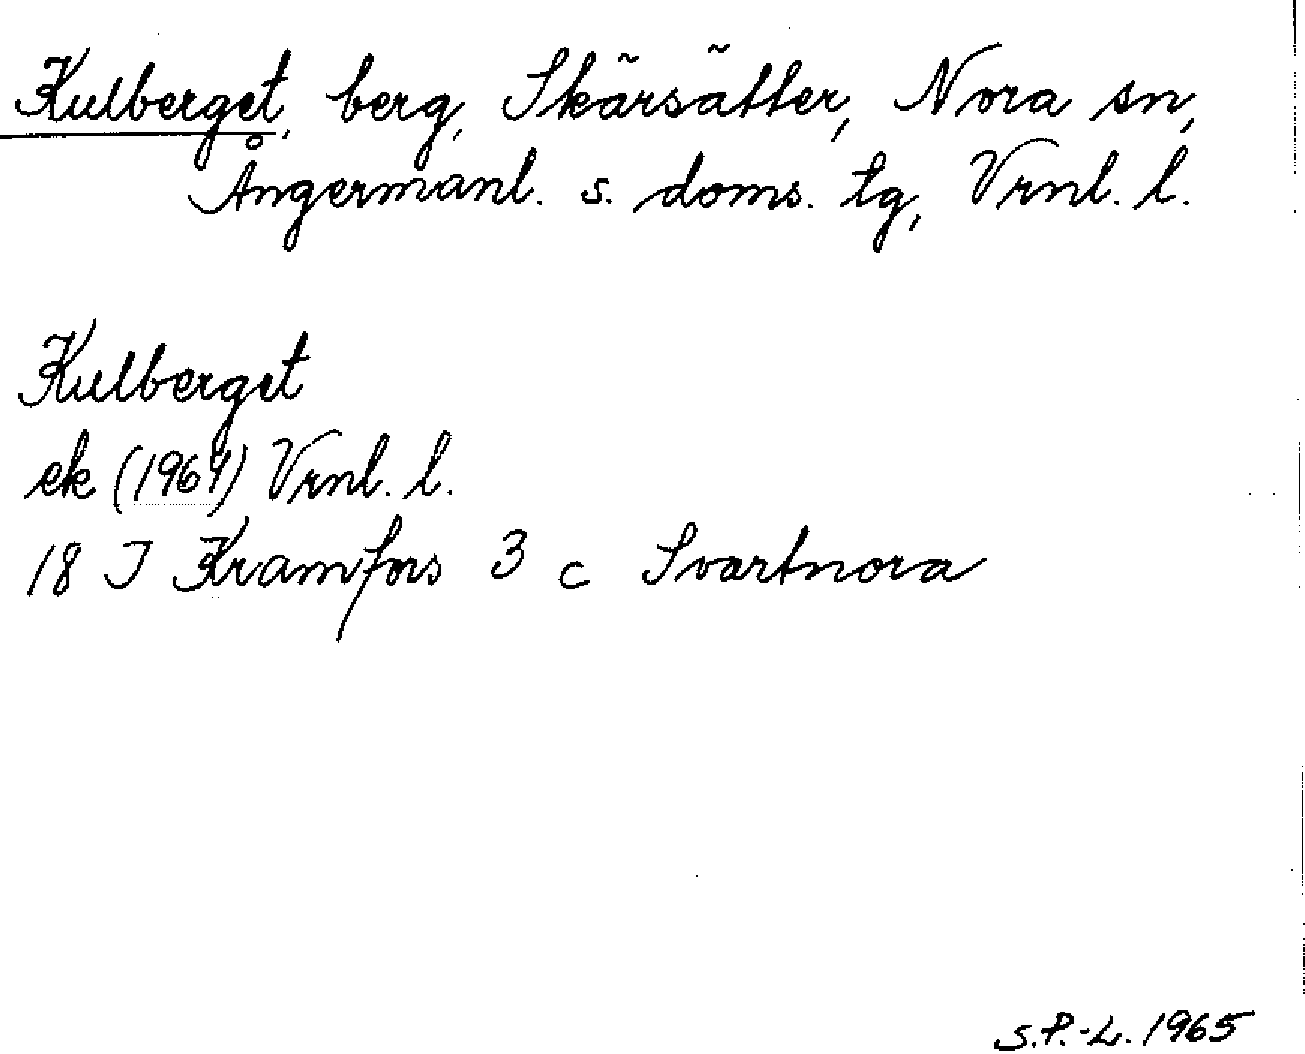 Kulberget, berg, Skärsätter, Nora sn,
Ångermanl. s. doms. tg, Vrnl. l.
Kulberget
ek (1964) Vrnl. l.
18 I Kramfors 3 c Svartnora
S.P.-L. 1965